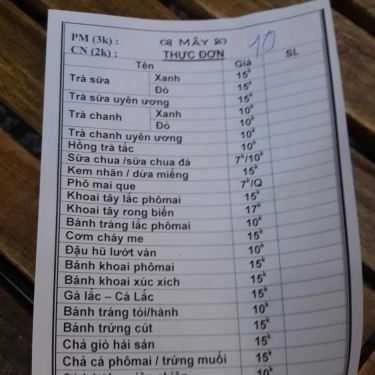 PM (3k) : 08 MÂY 80 10
CN (2k) : THỰC ĐƠN
Tên Giá SL
Trà sữa Xanh 15k
Đỏ 15k
Trà sữa uyên ương 20k
Trà chanh Xanh 10k
Đỏ 10k
Trà chanh uyên ương 15k
Hồng trà tắc 10k
Sữa chua /sữa chua đá 7k/10k
Kem nhãn / dừa miếng 15k
Phô mai que 7k/Q
Khoai tây lắc phômai 15k
Khoai tây rong biển 17k
Bánh tráng lắc phômai 10k
Cơm cháy me 15k
Đậu hũ lướt ván 10k
Bánh khoai phômai 15k
Bánh khoai xúc xích 15k
Gà lắc – Cá Lắc 15k
Bánh tráng tỏi/hành 10k
Bánh trứng cút 15k
Chả giò hải sản 15k
Chả cá phômai / trứng muối 15k